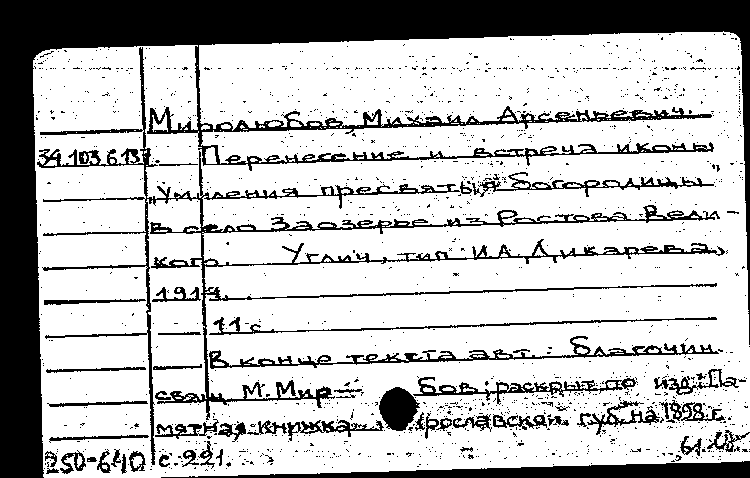 Миролюбов, Михаил Арсеньевич.
34.103.6.137. Перенесение и встреча иконы
„Умиления пресвятыя богородицы"
в село Заозерье из Ростова Вели-
кого. Углич, тип. И.А. Дикарева,
1914.
11 с.
В конце текста авт.: благочин.
свящ М. Мир бов; раскрыт по изд.: Па-
мятная книжка рославской губ. на 1898 г.
250-640 с. 221.